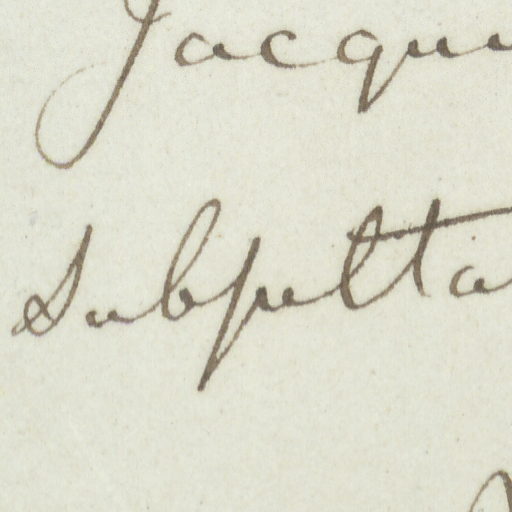 Jacqui
Subpelta